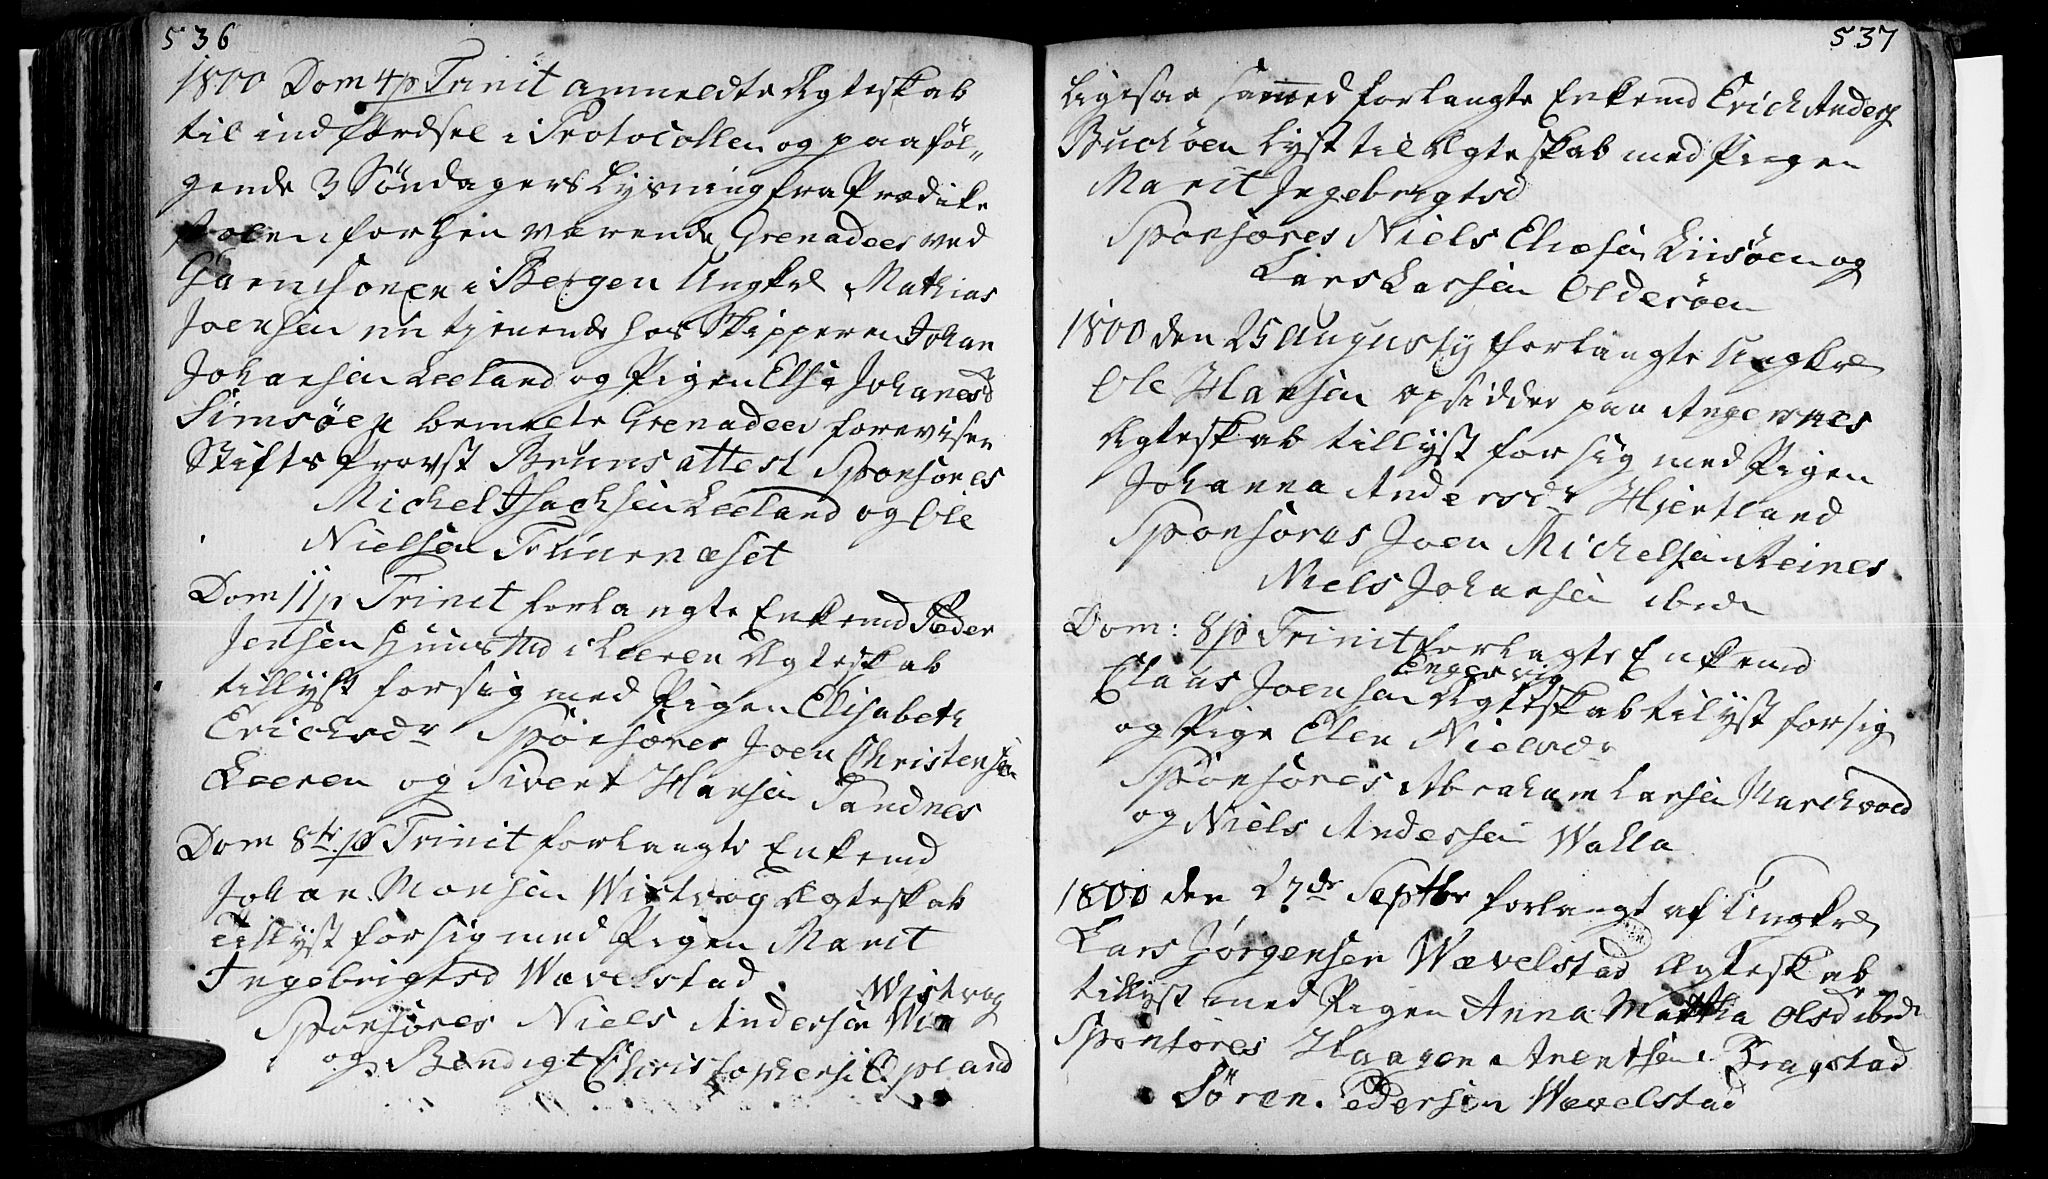 536
1800 Dom 4 p Trinit anmeldte Ægteskab
til indførdsel i Protocollen og paa føl„
gende 3 Søndagers Lysning fra Prædike
stolen forhen værende Grenadeer ved
Garnisonen i Bergen Ungkl Mathias
Joensen nu tjenende hos Skipperen Johan
Johansen Leeland og Pigen Else Johanesd
Simsøen bemelte Grenadeer foreviser
Stifts Provst Bruns attest Sponsores
Michel Isachsen Leeland og Ole
Nielsen
Dom 11 p Trinit forlangte Enkemd Peder
Jensen i Leeren Ægteskab
tillyst for sig med Pigen Elisabeth
Erichsdr Sponsores Joen Christensen
Leeren og Sivert Hansen Sandnes
Dom 8de p Trinit forlangte Enkemd
Johan Monsen Wistvog Ægteskab
tillyst for sig med Pigen Marit
Ingebrigtsd Wævelstad
Sponsores Niels Andersen Wistvog
og Bendigt Christophersen
537
Ligesaa forlangte Enkemd Erich Anders
Buchøen Lyst til Ægteskab med Pigen
Marit Ingebrigtsd
Sponsores Niels Eliesen og
Lars Larsen Olderøen
1800 den 25 Augusty forlangte Ungkl
Ole Hansen opsidder paa Angersnes
Ægteskab tillyst for sig med Pigen
Johanna Andersdr Hjertland
Sponsores Joen Michelsen Reines
Niels Johansen ibidn
Dom: 8 p Trinit forlagte Enkemd
Claus Joensen Engesvig Ægteskab tilyst for sig
og Pige Elen Nielsdr
Sponsores Abraham Larsen Marchvold
og Niels Andersen Walla
1800 den 27de Septbr forlangt af Ungkl
Lars Jørgensen Wævelstad Ægteskab
tillyst med Pigen Anna Martha Olsd ibidn
Sponsores Haagen Arentsen Bragstad
Søren Pedersen Wævelstad